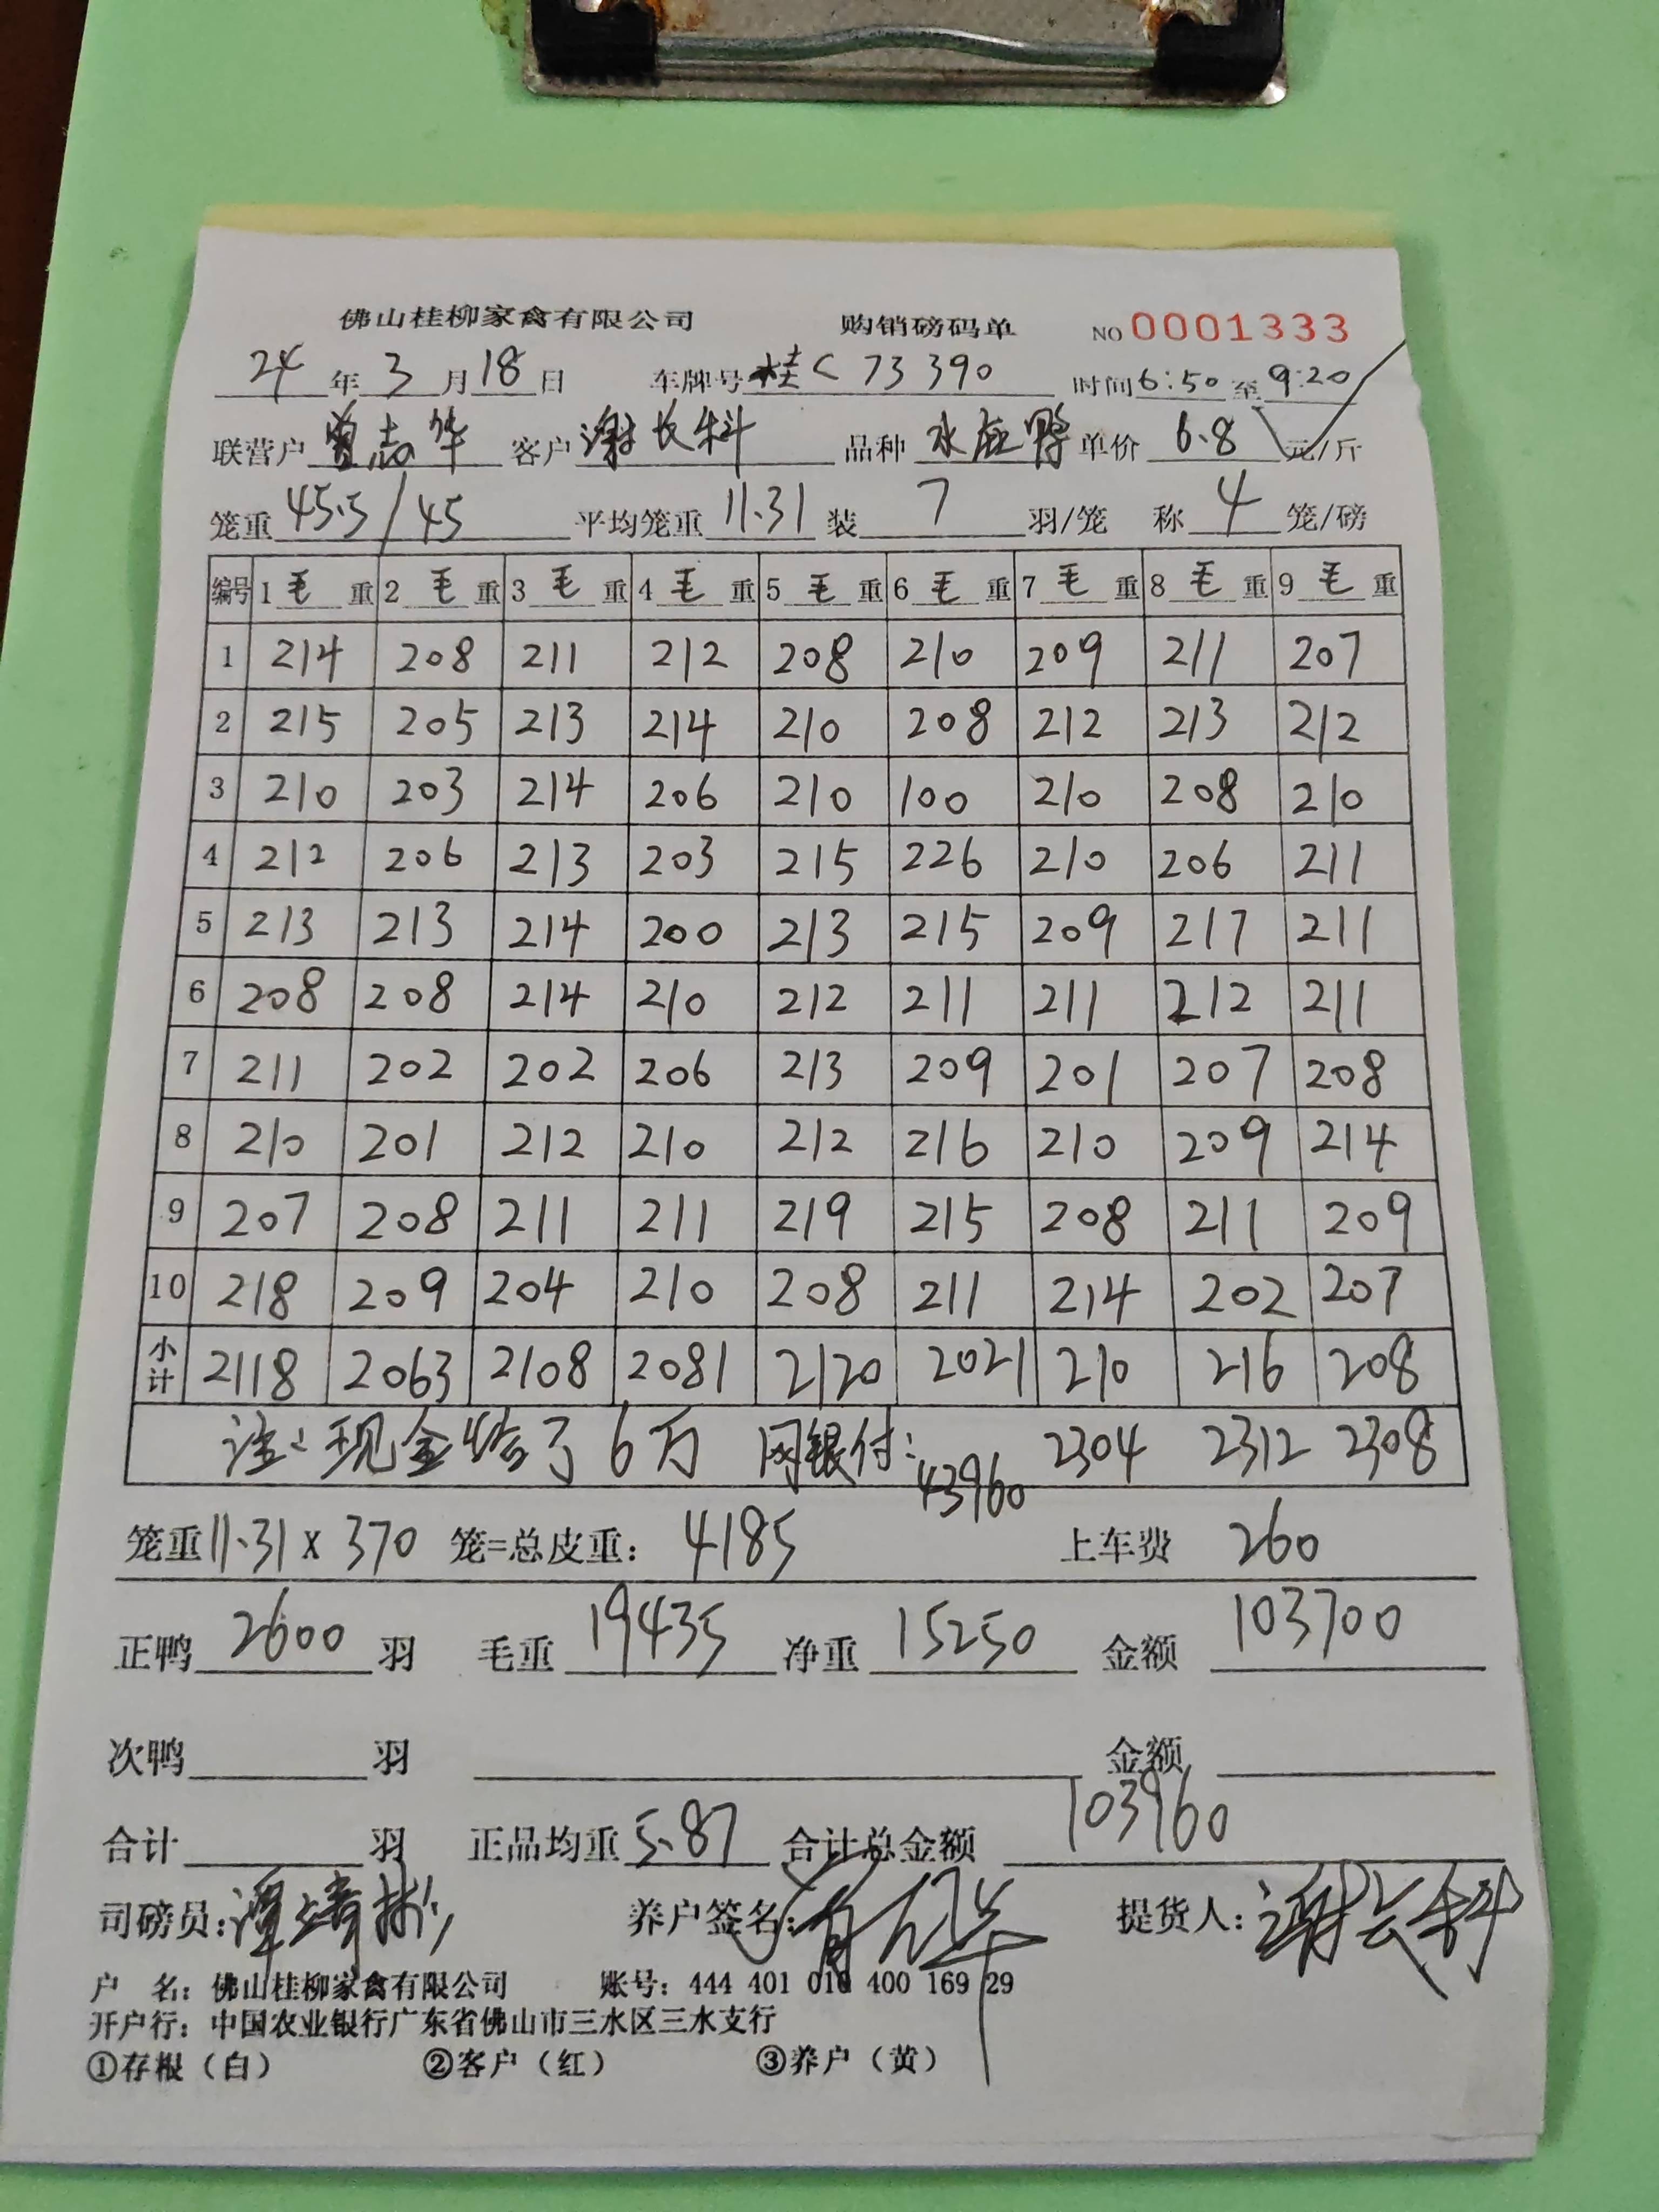 佛山桂柳家禽有限公司 购销磅码单 NO 0001333
24年3月18日 车牌号桂C73390 时间6:50至9:20
联营户曾志华 客户谢长科 品种水鸭 单价6.8元/斤
笼重45.5/45 平均笼重11.31装7羽/笼 称4笼/磅
编号 1毛重 2毛重 3毛重 4毛重 5毛重 6毛重 7毛重 8毛重 9毛重
1 214 208 211 212 208 210 209 211 207
2 215 205 213 214 210 208 212 213 212
3 210 203 214 206 210 100 210 208 210
4 212 206 213 203 215 226 210 206 211
5 213 213 214 200 213 215 209 217 211
6 208 208 214 210 212 211 211 212 211
7 211 202 202 206 213 209 201 207 208
8 210 201 212 210 212 216 210 209 214
9 207 208 211 211 219 215 208 211 209
10 218 209 204 210 208 211 214 202 207
小计 2118 2063 2108 2081 2120 2021 210 216 208
注:现金给了6万 网银付:43960 2304 2312 2308
笼重11.31x370笼=总皮重:4185 上车费 260
正鸭2600羽 毛重19435净重15250 金额103700
次鸭 羽 金额
合计 羽 正品均重5.87 合计总金额103960
司磅员:谭 养户签名:曾志华 提货人:谢长科
户 名:佛山桂柳家禽有限公司 账号:444 401 010 400 169 29
开户行:中国农业银行广东省佛山市三水区三水支行
①存根(白) ②客户(红) ③养户(黄)